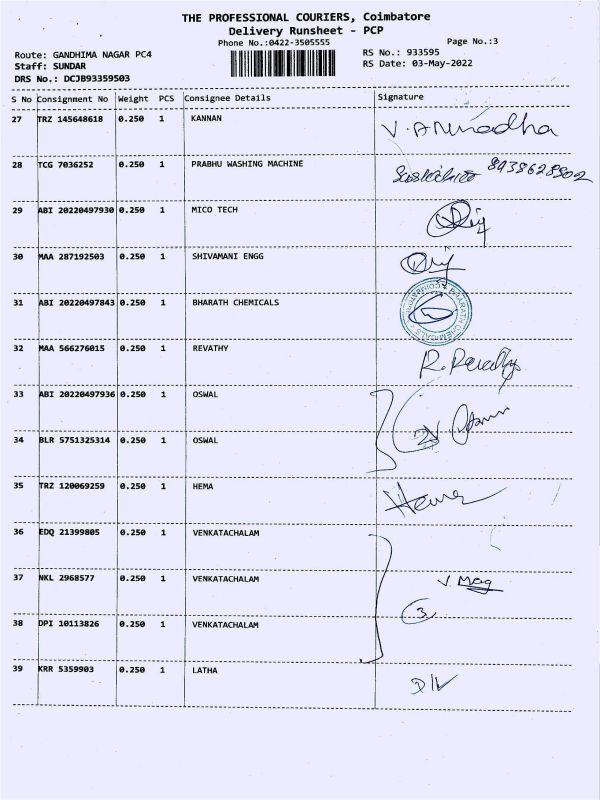 THE PROFESSIONAL COURIERS, Coimbatore
Delivery Runsheet - PCP
Phone No.:0422-3505555
Page No.:3
Route: GANDHIMA NAGAR PC4
RS No.: 933595
Staff: SUNDAR
RS Date: 03-May-2022
DRS No.: DCJB93359503
S No Consignment No Weight PCS Consignee Details Signature
27 TRZ 145648618 0.250 1 KANNAN V. Anuradha
28 TCG 7036252 0.250 1 PRABHU WASHING MACHINE 8438628902
29 ABI 20220497930 0.250 1 MICO TECH
30 MAA 287192503 0.250 1 SHIVAMANI ENGG
31 ABI 20220497843 0.250 1 BHARATH CHEMICALS BHARATH CHEMICALS COIMBATORE
32 MAA 566276015 0.250 1 REVATHY R.
33 ABI 20220497936 0.250 1 OSWAL
34 BLR 5751325314 0.250 1 OSWAL
35 TRZ 120069259 0.250 1 HEMA Hema
36 EDQ 21399805 0.250 1 VENKATACHALAM
37 NKL 2968577 0.250 1 VENKATACHALAM V. Mag
38 DPI 10113826 0.250 1 VENKATACHALAM 3
39 KRR 5359903 0.250 1 LATHA D/V